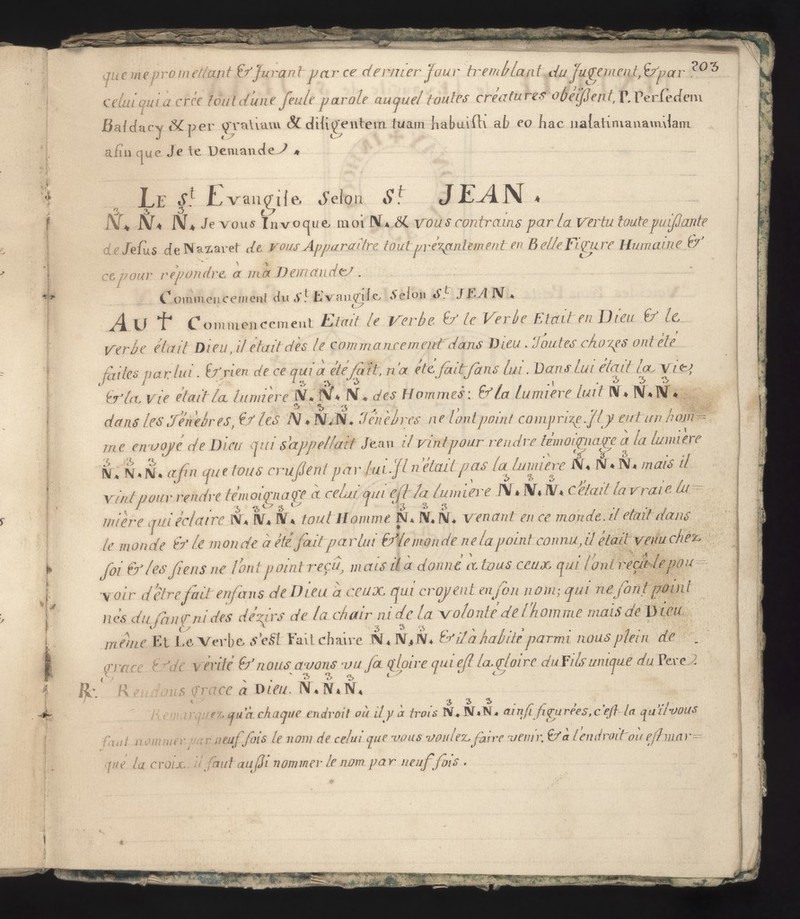 203
que me promettant & Jurant par ce dernier Jour tremblant du Jugement, & par
celui qui à crée tout d'une seule parole auquel toutes créatures obéissent, P. Persedem
Baldacy & per gratiam & diligentem tuam habuisti ab eo hac nalatimanamilam
afin que Je te Demande.
LE St. Evangile Selon St. JEAN.
N. N. N. Je vous Invoque moi N. & vous contrains par la Vertu toute puissante
de Jesus de Nazaret de vous Apparaitre tout prézantement en Belle Figure Humaine &
ce pour répondre à ma Demande.
Commencement du St. Evangile Selon St. JEAN.
AU ✝ Commencement Etait le Verbe & le Verbe Etait en Dieu & le
Verbe était Dieu, il était dès le commancement dans Dieu. Toutes chozes ont été
faites par lui. & rien de ce qui à été fait, n'a été fait sans lui. Dans lui était la Vie;
& la Vie était la lumière N.3 N.3 N.3 des Hommes: & la lumière luit N.3 N.3 N.3
dans les Ténèbres, & les N.3 N.3 N.3 Ténèbres ne l'ont point comprize. Il y eut un hom=
me envoyé de Dieu qui s'appellait Jean il vint pour rendre témoignage à la lumière
N.3 N.3 N.3 afin que tous crussent par lui. Il n'était pas la lumière N.3 N.3 N.3 mais il
vint pour rendre témoignage à celui qui est la lumière N.3 N.3 N.3 c'était la vraie lu=
mière qui éclaire N.3 N.3 N.3 tout Homme N.3 N.3 N.3 venant en ce monde. il etait dans
le monde & le monde à été fait par lui & le monde ne la point connu, il était venu chez
soi & les siens ne l'ont point reçû, mais il à donné à tous ceux qui l'ont reçû le pou=
voir d'être fait enfans de Dieu à ceux qui croyent en son nom; qui ne sont point
nés du sang ni des dézirs de la chair ni de la volonté de l'homme mais de Dieu
même Et Le Verbe s'est Fait chaire N.3 N.3 N.3 & il à habité parmi nous plein de
grace & de vérité & nous avons vu sa gloire qui est la gloire du Fils unique du Pere.
R. Rendons grace à Dieu. N.3 N.3 N.3
Remarquez qu'à chaque endroit où il y à trois N.3 N.3 N.3 ainsi figurées, c'est la qu'il vous
faut nommer par neuf fois le nom de celui que vous voulez faire venir. & à l'endroit où est mar=
qué la croix. il faut aussi nommer le nom par neuf fois.